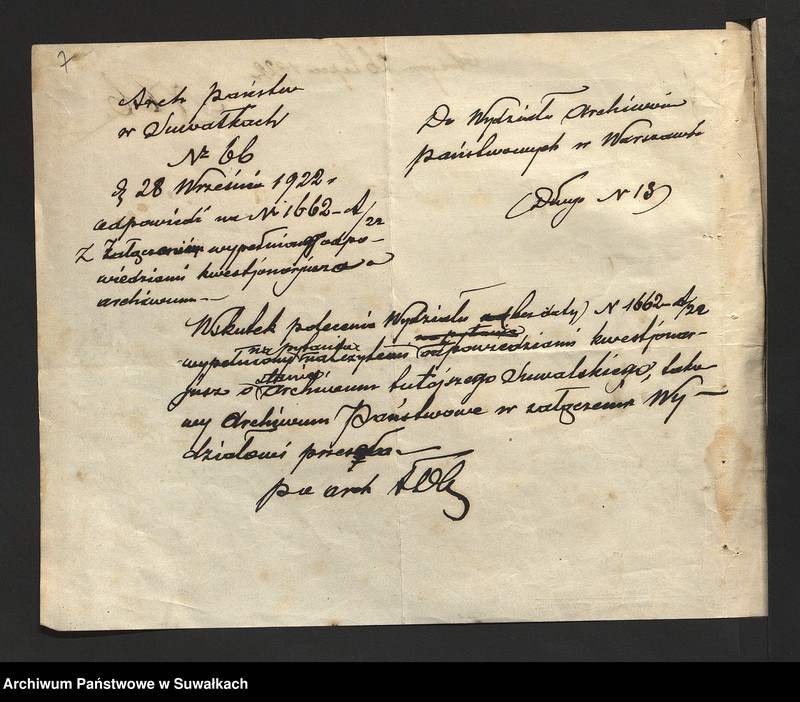 7
Arch państw
w Suwałkach
№ 66
28 Września 1922 r
odpowiedź na № 1662-A/22
Z załączeniem wypełnionego odpo-
wiedziami kwestjonarjusza o
archiwum
Do Wydziału Archiwów
państwowych w Warszawie
(Długa № 13)
Wskutek polecenia Wydziału (bez daty) № 1662-A/22
na pytania
wypełniony należytemi odpowiedziami kwestjonar-
stanie
jusz o archiwum tutejszego Suwalskiego, tako-
wy Archiwum Państwowe w załączeniu Wy-
działowi przesyła
arch
Archiwum Państwowe w Suwałkach